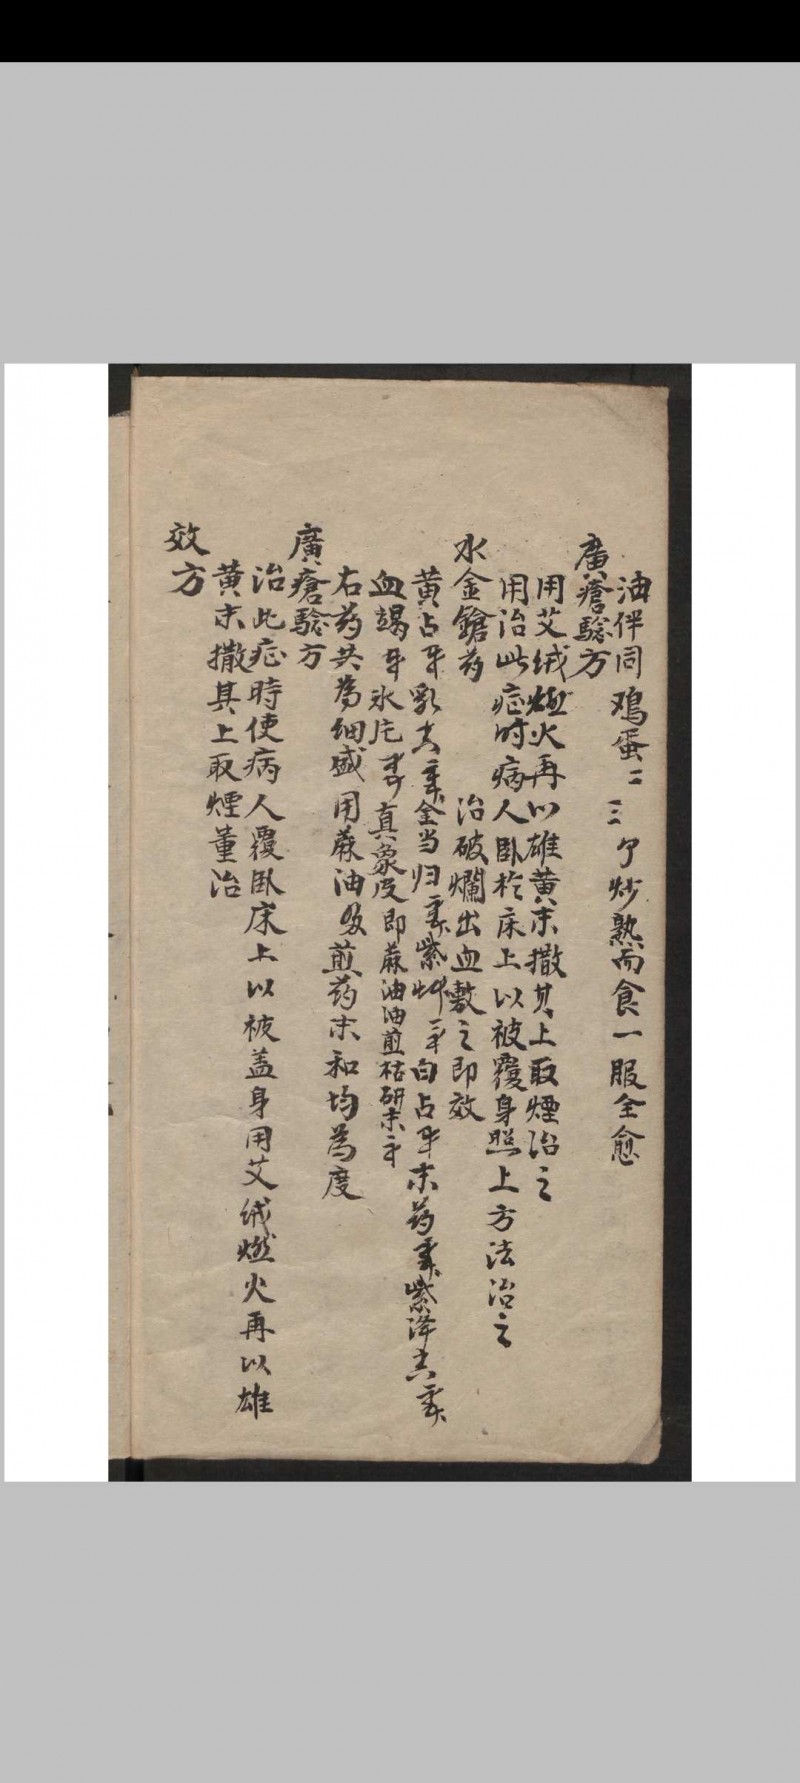 油伴同鸡蛋二三个炒熟而食一服全愈
廣瘡驗方
用艾绒燃火再以雄黄末撒其上取煙治之
用治此症时病人卧於床上以被覆身照上方法治之
水金鎗药 治破爛出血敷之即效
黄占 乳香 全当归 紫艸 白占 末药 紫降香
血竭 氷片 真象皮即蔴油油煎枯研末
右药共為细盛用蔴油煎药末和均為度
廣瘡驗方
治此症時使病人覆卧床上以被盖身用艾绒燃火再以雄
黄末撒其上取煙薫治
效方